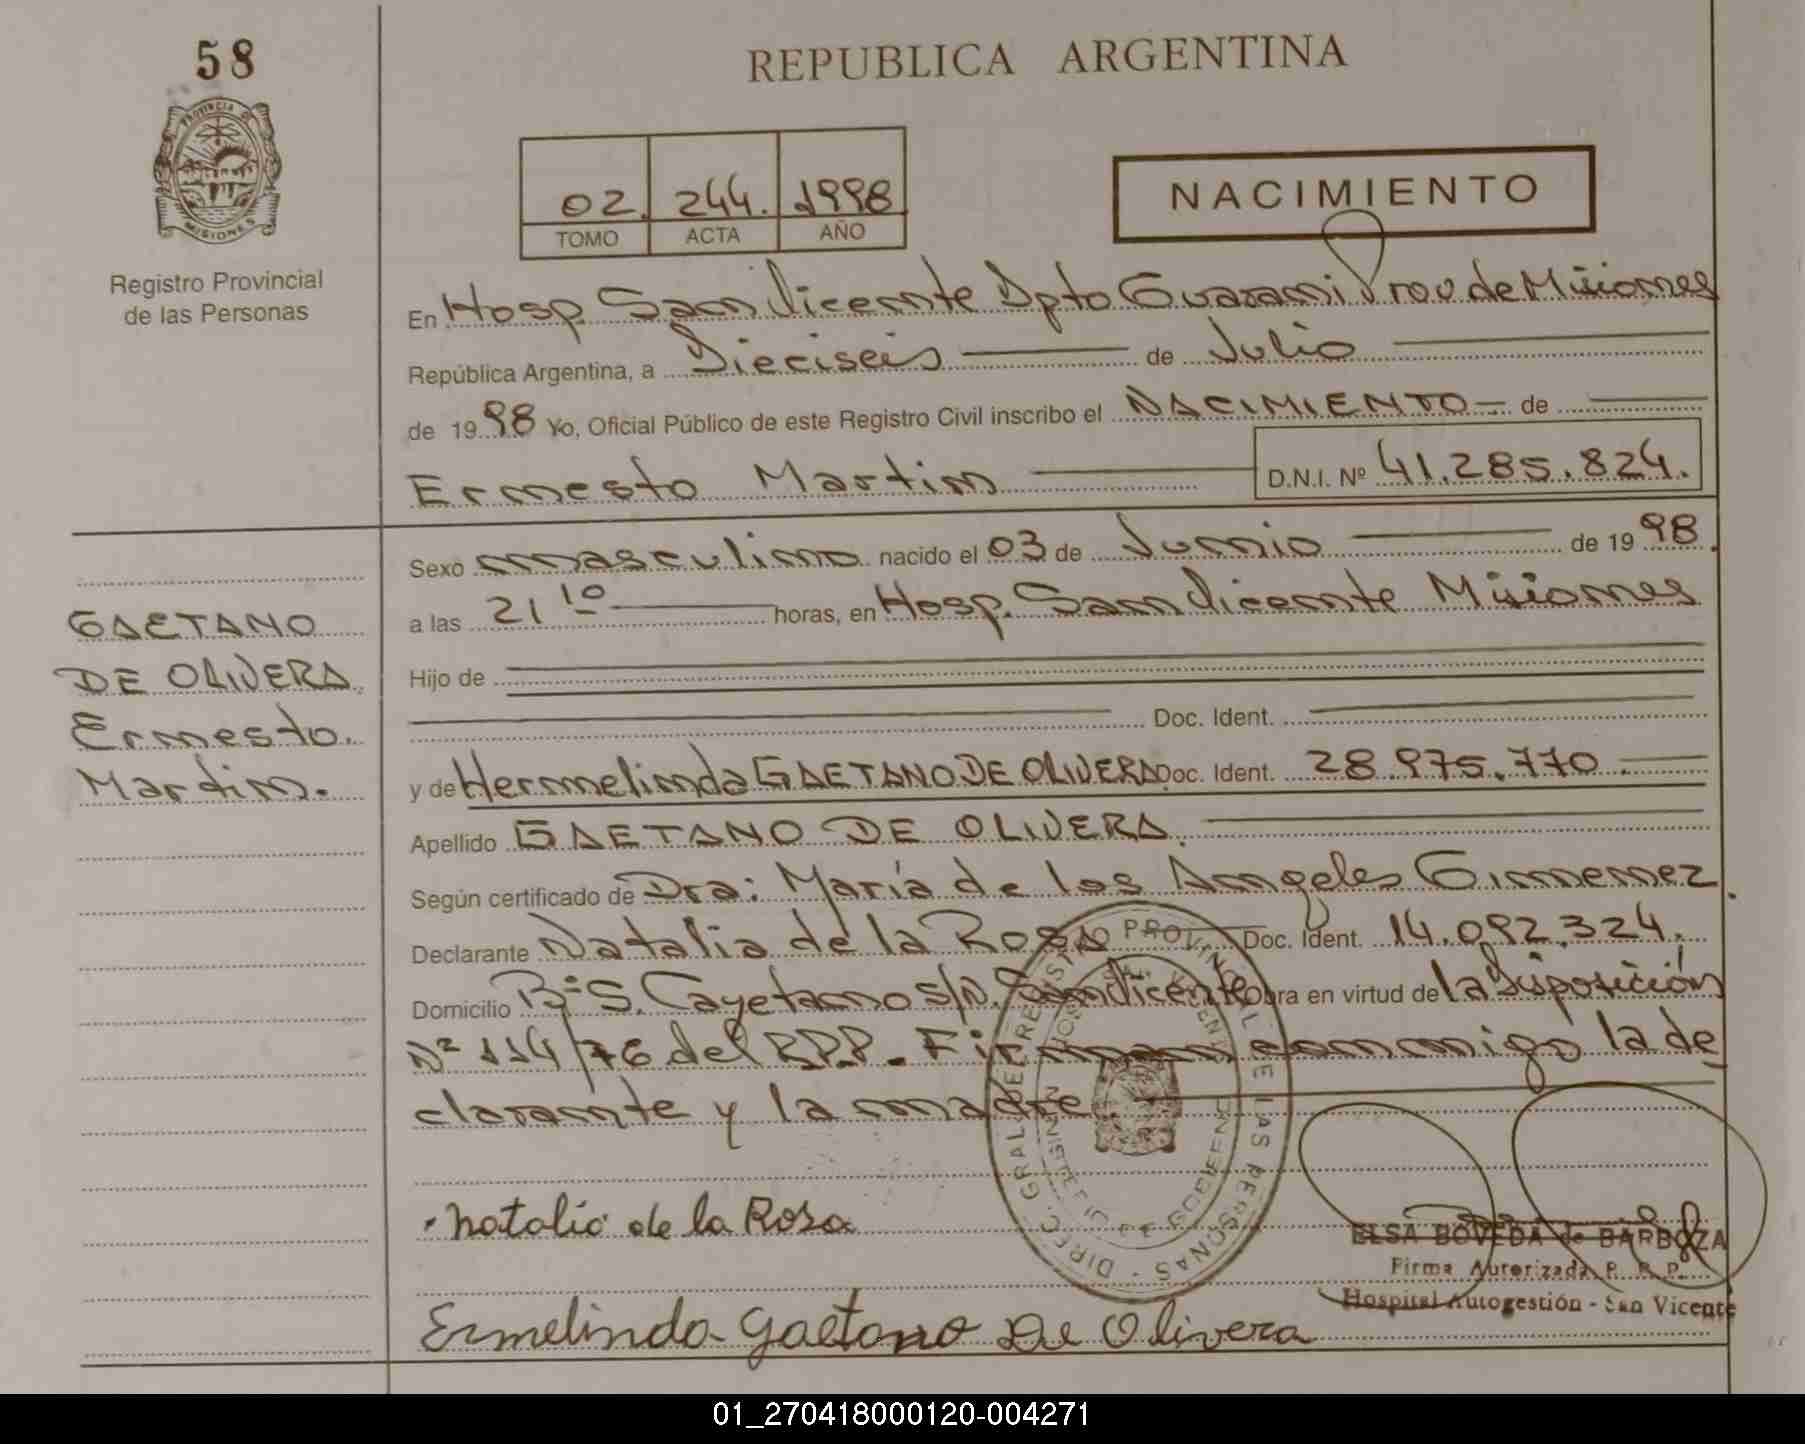 58
REPUBLICA ARGENTINA
PROVINCIA DE
MISIONES
Registro Provincial
de las Personas
02. 244. 1998
TOMO ACTA AÑO
NACIMIENTO
En Hosp. San Vicente Dpto Guarani Prov de Misiones
República Argentina, a Dieciseis de Julio
de 1998 Yo, Oficial Público de este Registro Civil inscribo el NACIMIENTO de
Ernesto Martin D.N.I. Nº 41.285.824.
GAETANO
DE OLIVERA
Ernesto.
Martin.
Sexo masculino nacido el 03 de Junio de 1998.
a las 21 10 horas, en Hosp. San Vicente Misiones
Hijo de
Doc. Ident.
y de Hermelinda GAETANO DE OLIVERA Doc. Ident. 28.975.770.
Apellido GAETANO DE OLIVERA.
Según certificado de Dra: María de los Angeles Gimenez.
Declarante Natalia de la Rosa Doc. Ident. 14.092.324.
Domicilio Bº S. Cayetano S/N. San Vicente Obra en virtud de la Disposición
Nº 114/76 del R.P.P. Firman conmigo la de
clarante y la madre
DIREC. GRAL. DE REGISTRO PROVINCIAL DE LAS PERSONAS
MINISTERIO DE GOBIERNO
natalio de la Rosa
ELSA BOVEDA de BARBOZA
Firma Autorizada R. P. P.
Hospital Autogestión - San Vicente
Ermelinda Gaetano De Olivera
01_270418000120-004271